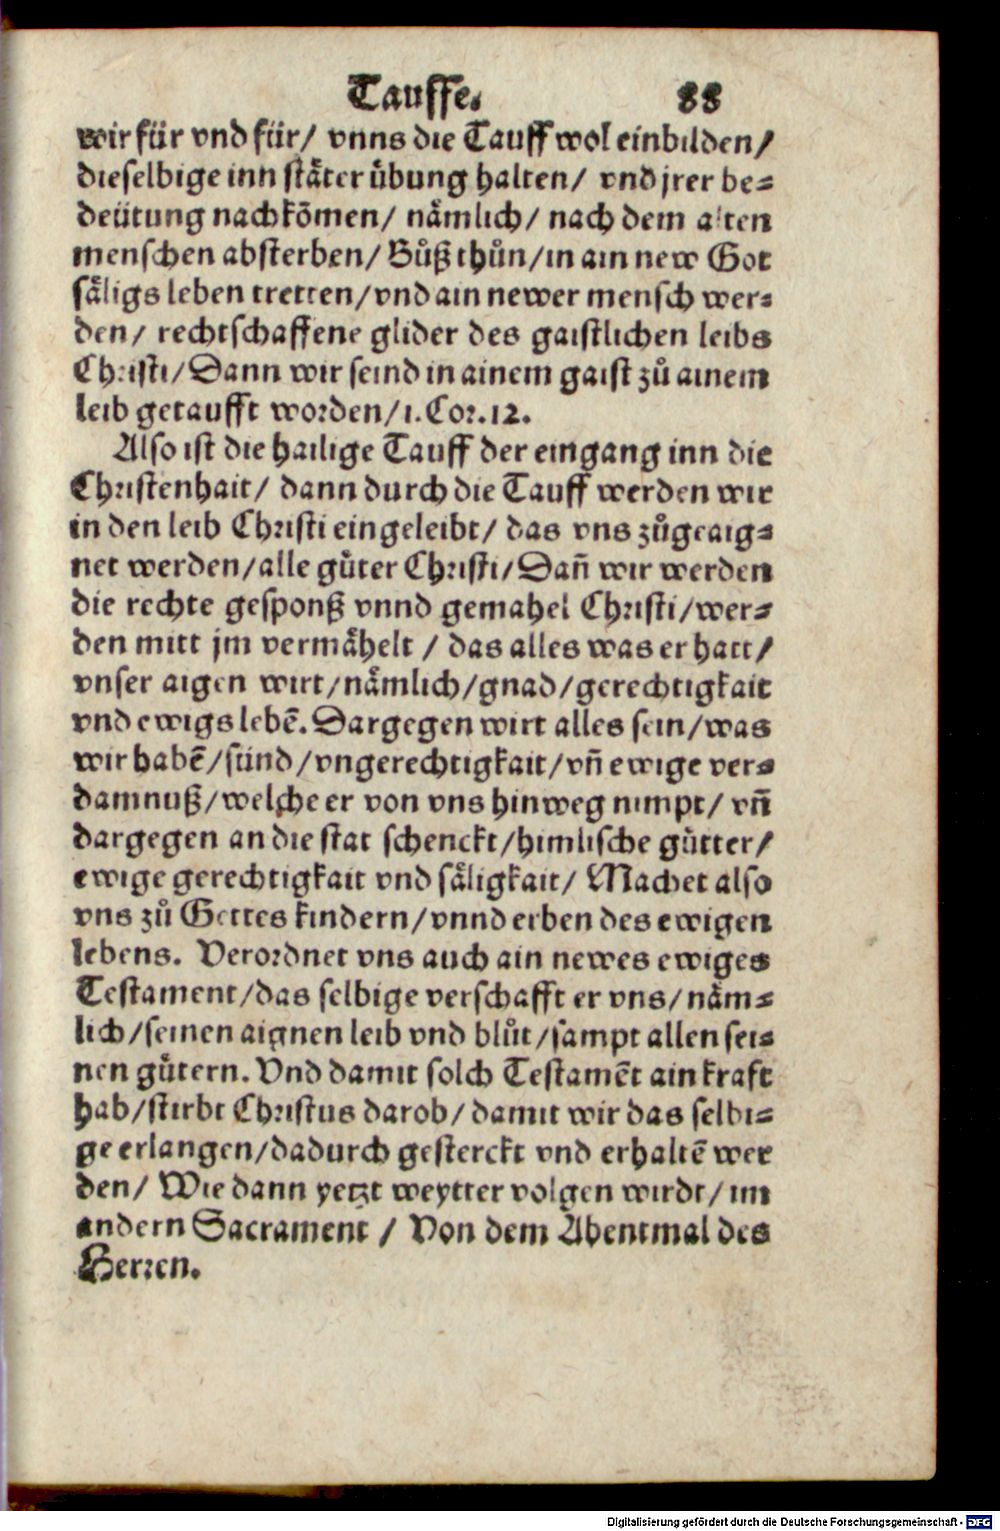 Tauffe. 88
wir für vnd für/ vnns die Tauff wol einbilden/
dieselbige inn stäter übung halten/ vnd jrer be-
deütung nachkōmen/ nämlich/ nach dem alten
menschen absterben/ Bůß thůn/in ain new Got
säligs leben tretten/vnd ain newer mensch wer-
den/ rechtschaffene glider des gaistlichen leibs
Christi/Dann wir seind in ainem gaist zů ainem
leib getaufft worden/1. Cor. 12.
Also ist die hailige Tauff der eingang inn die
Christenhait/ dann durch die Tauff werden wir
in den leib Christi eingeleibt/ das vns zůgeaig-
net werden/alle gůter Christi/Dañ wir werden
die rechte gesponß vnnd gemahel Christi/wer-
den mitt jm vermähelt / das alles was er hatt/
vnser aigen wirt/nämlich/gnad/gerechtigkait
vnd ewigs lebē. Dargegen wirt alles sein/was
wir habē/sünd/vngerechtigkait/vñ ewige ver-
damnuß/welche er von vns hinweg nimpt/ vñ
dargegen an die stat schenckt/himlische gůtter/
ewige gerechtigkait vnd säligkait/ Machet also
vns zů Gottes kindern/vnnd erben des ewigen
lebens. Verordnet vns auch ain newes ewiges
Testament/das selbige verschafft er vns/näm-
lich/seinen aignen leib vnd blůt/sampt allen sei-
nen gůtern. Vnd damit solch Testamēt ain krafft
hab/stirbt Christus darob/damit wir das selbi-
ge erlangen/dadurch gesterckt vnd erhaltē wer
den/ Wie dann yetzt weytter volgen wirdt/im
andern Sacrament / Von dem Abentmal des
Herren.
Digitalisierung gefördert durch die Deutsche Forschungsgemeinschaft - DFG